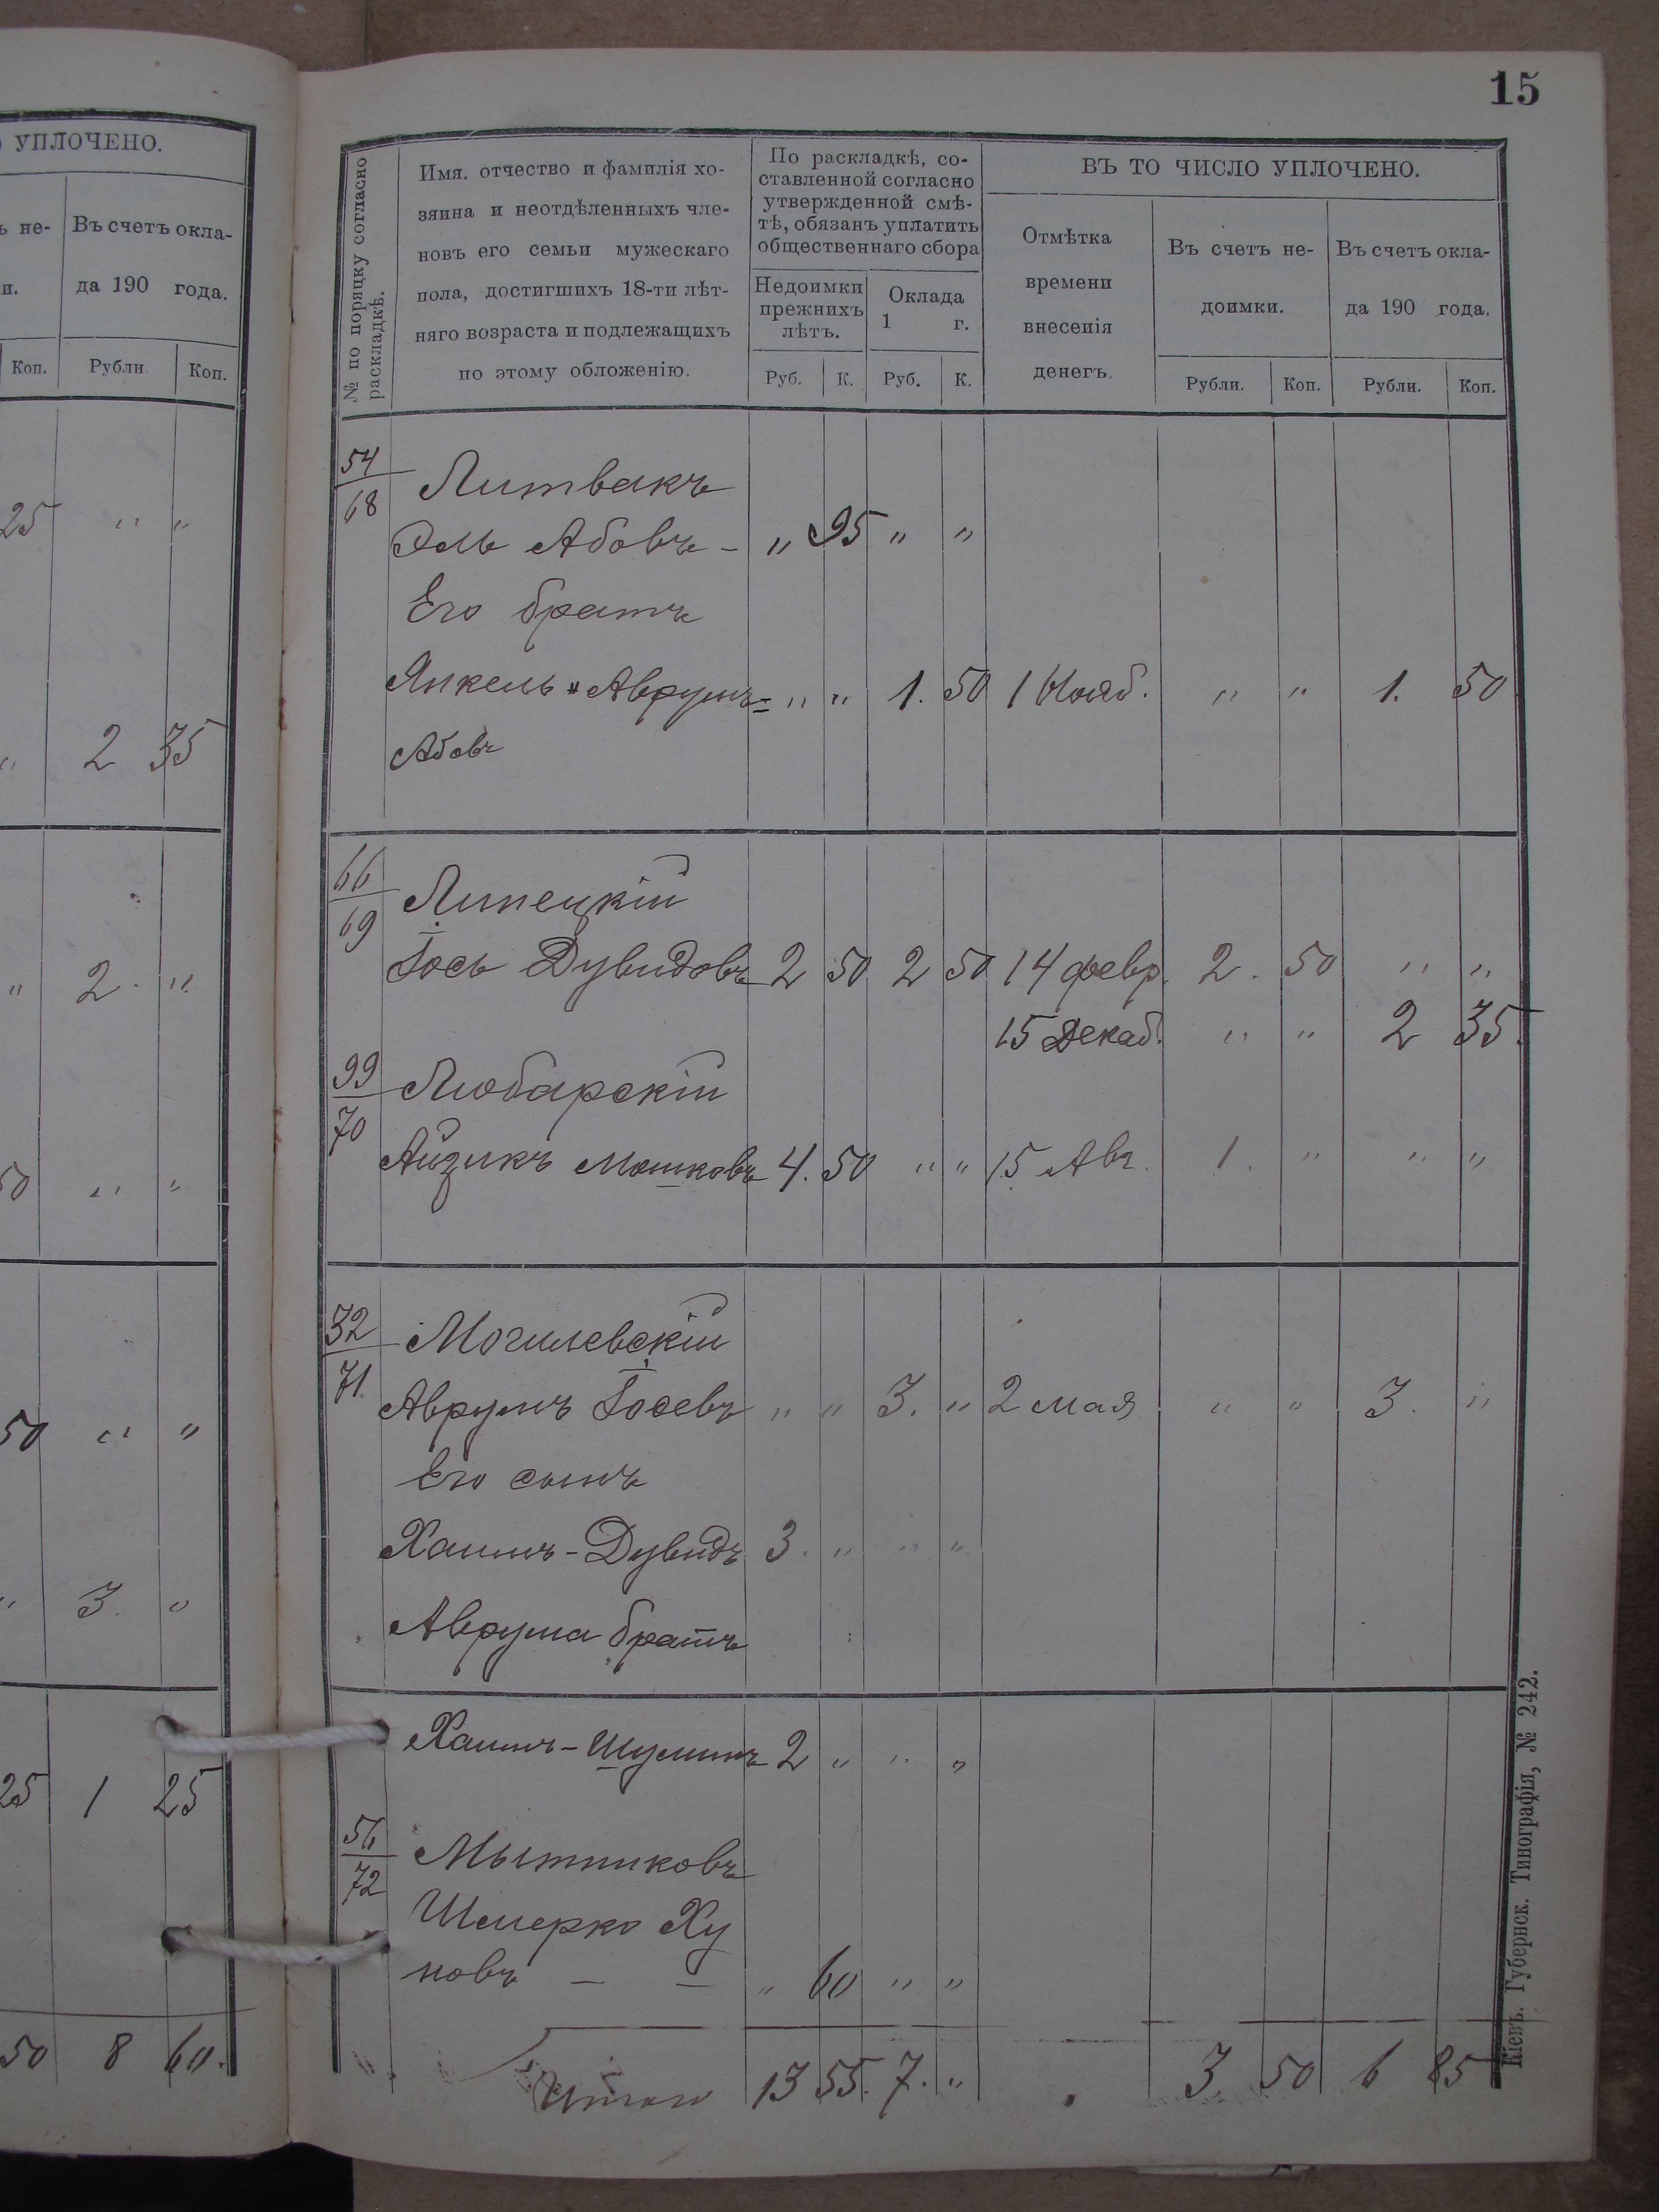 УПЛОЧЕНО.
ъ не-
Въ счетъ окла-
и.
да 190 года.
Коп.
Рубли.
Коп.
25 " "
" 2 35
" 2 "
50 " "
50 " "
" 3. "
25 1 25
50 8 60.
15
№ по поряцку согласно раскладкѣ.
Имя, отчество и фамилія хо-
зяина и неотдѣленныхъ чле-
новъ его семьи мужескаго
пола, достигшихъ 18-ти лѣт-
няго возраста и подлежащихъ
по этому обложенію.
По раскладкѣ, со-
ставленной согласно
утвержденной смѣ-
тѣ, обязанъ уплатить
общественнаго сбора
Недоимки
прежнихъ
лѣтъ.
Оклада
1 г.
Руб.
К.
Руб.
К.
ВЪ ТО ЧИСЛО УПЛОЧЕНО.
Отмѣтка
времени
внесенія
денегъ.
Въ счетъ не-
доимки.
Въ счетъ окла-
да 190 года.
Рубли.
Коп.
Рубли.
Коп.
54
68
Литвакъ
Эль Абовъ - " 95 " "
Его братъ
Янкель-Аврумъ - " " 1. 50 1 Нояб. " " 1. 50
Абовъ
66
69
Липецкій
Іось Дувидовъ 2 50 2 50 14 февр. 2. 50 " "
15 Декаб. " " 2 35.
99
70
Любарскій
Айзикъ Мошковъ 4. 50 " " 15 Авг. 1. " " "
32
71
Могилевскій
Аврумъ Іосевъ " " 3. " 2 мая " " 3. "
Его сынъ
Хаимъ-Дувидъ 3. " " "
Аврума братъ
Хаимъ-Шулимъ 2 " " "
56
72
Мытниковъ
Шмерко Ху
новъ — — " 60 " "
Итого 13 55. 7. " 3. 50 6 85
Кіевъ. Губернск. Типографія, № 242.